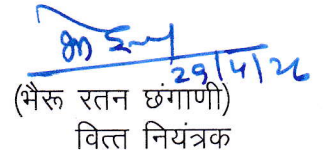 29/4/26
(भैरू रतन छंगाणी)
वित्त नियंत्रक